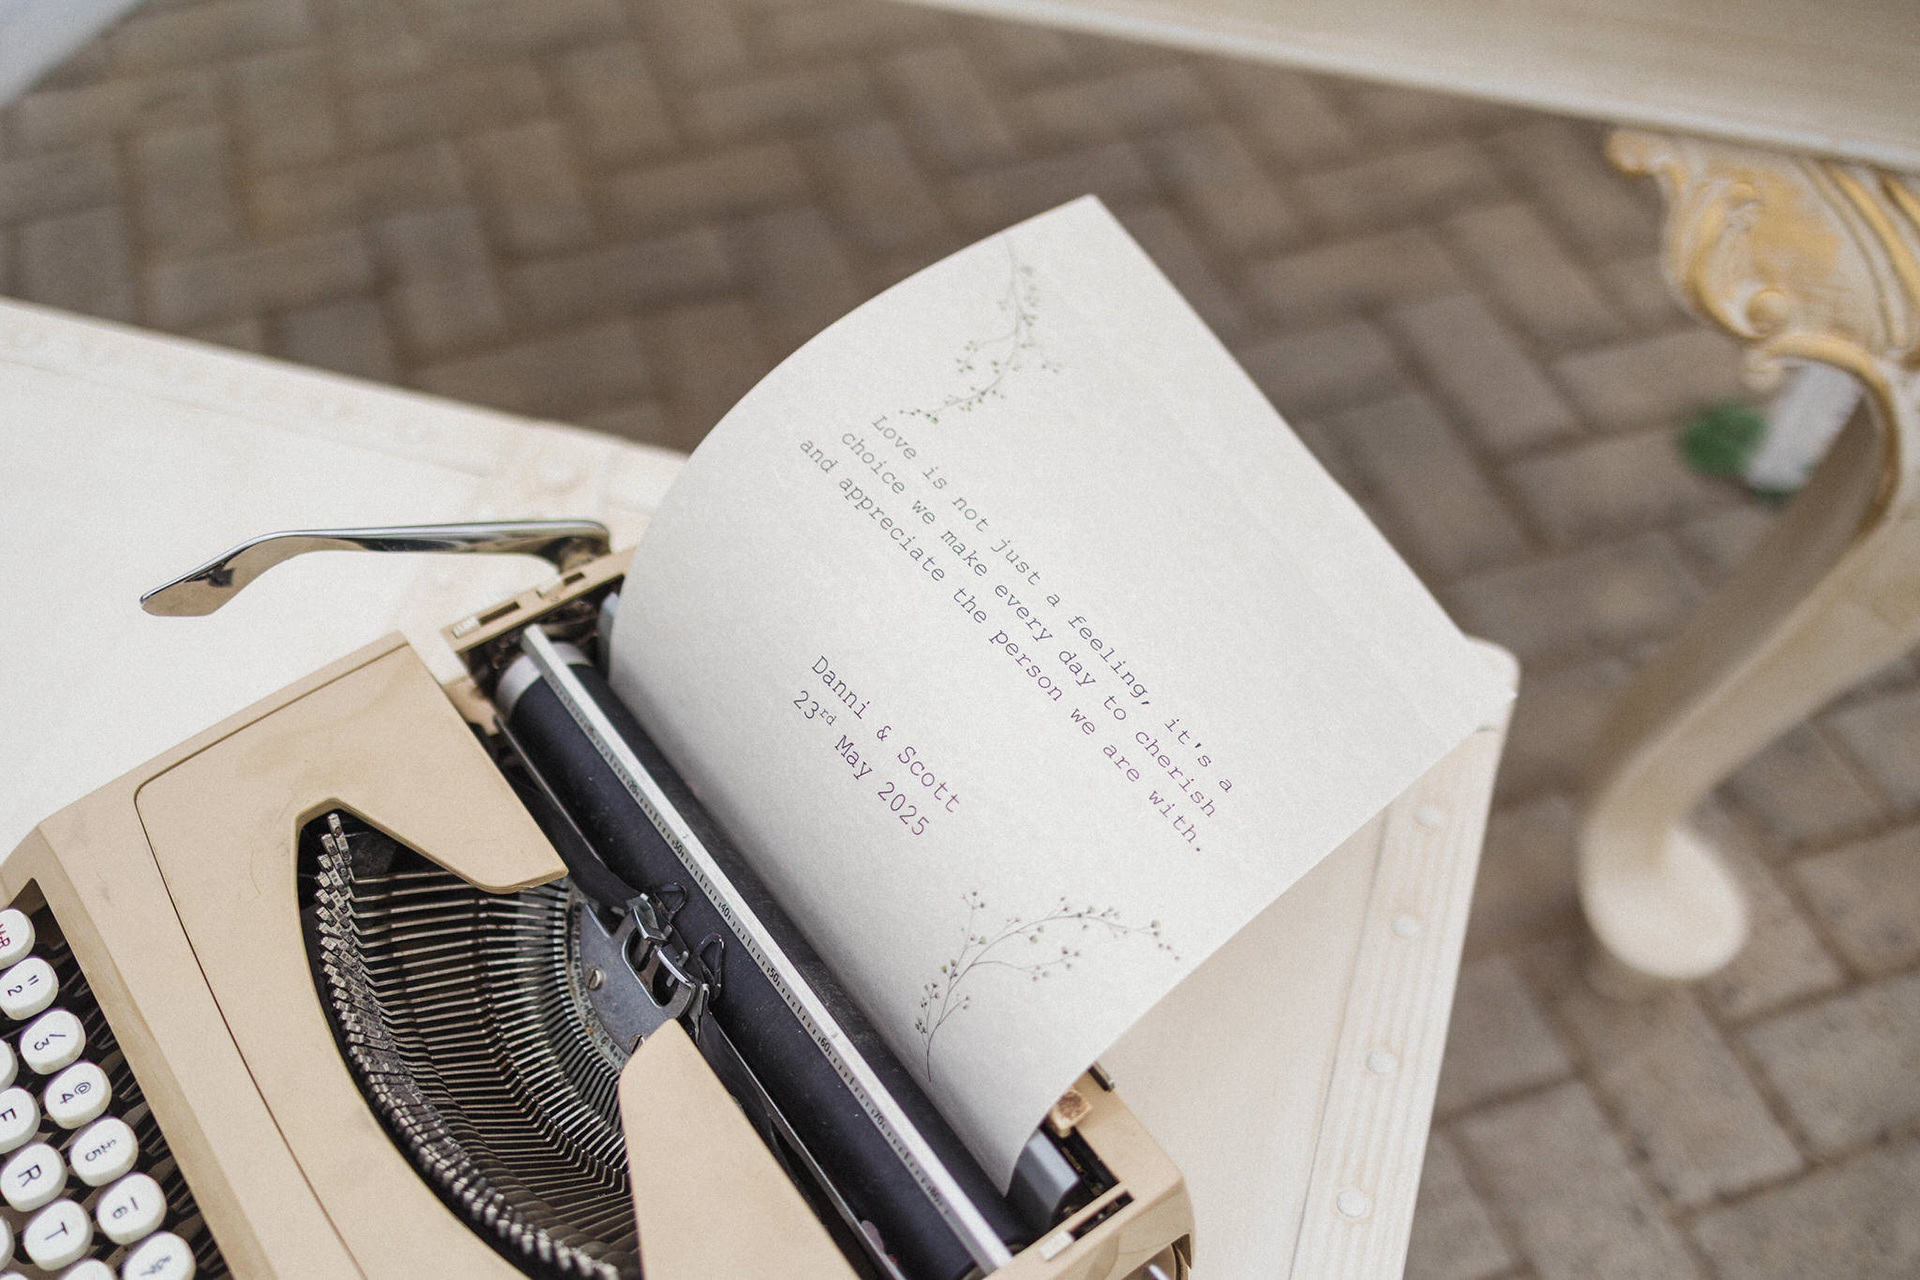 Love is not just a feeling, it's a
choice we make every day to cherish
and appreciate the person we are with.
Danni & Scott
23rd May 2025
" 2
/ 3
@ 4
£ 5
_ 6
F
R
T
30
40
50
60
70